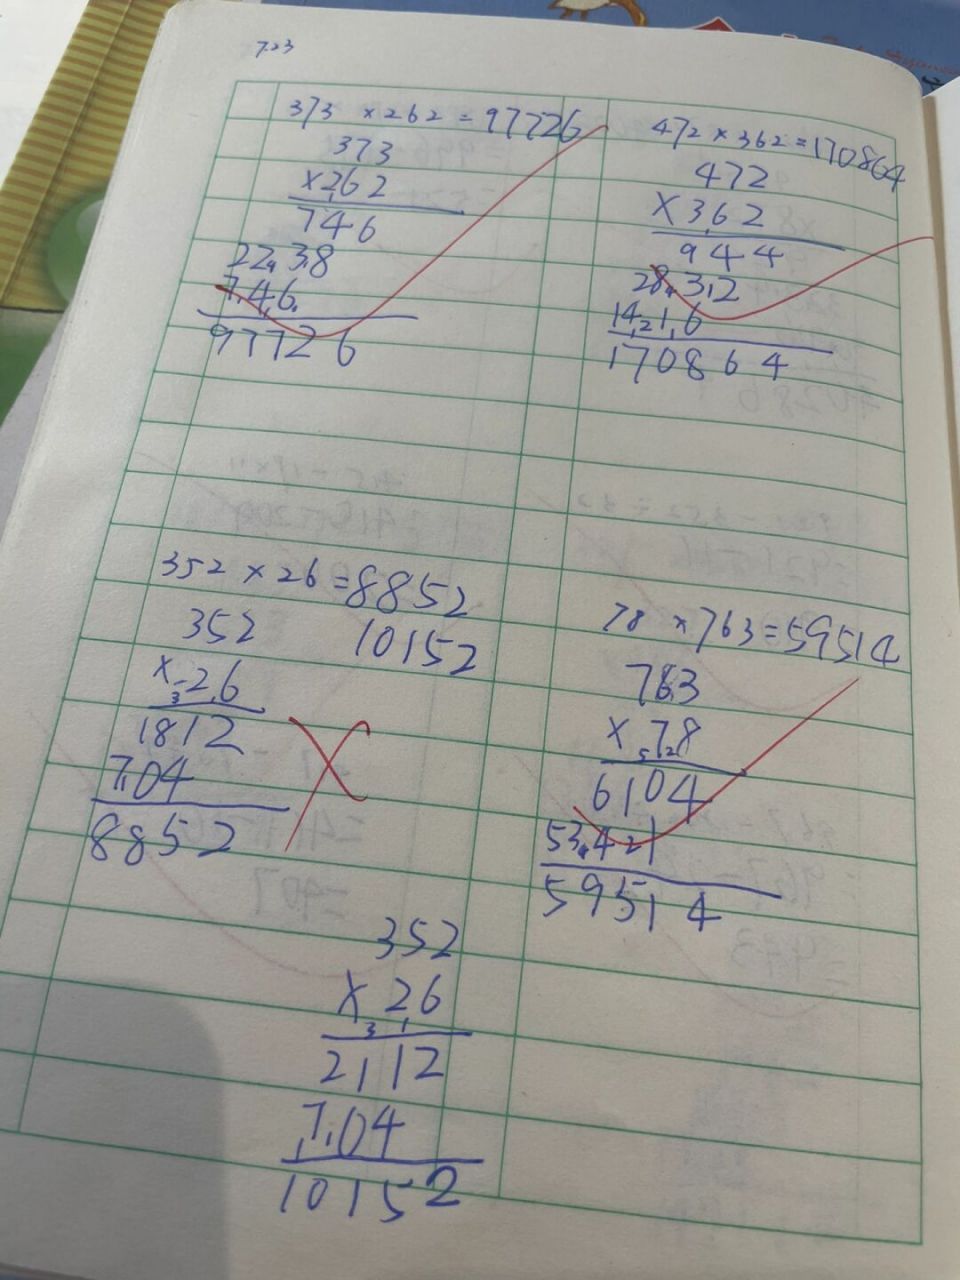 7.23
373 × 262 = 97726
373
×262
746
2238
746
97726
472 × 362 = 170864
472
×362
944
2832
1416
170864
352 × 26 = 8852
10152
352
×26
1812
704
8852
78 × 763 = 59514
763
×78
6104
5341
59514
352
×26
2112
704
10152